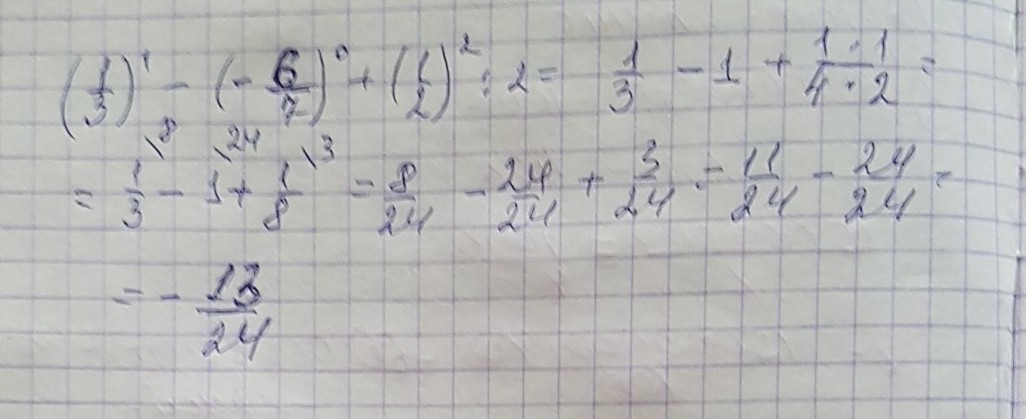 (1/3)¹ - (-6/7)⁰ + (1/2)² : 2 = 1/3 - 1 + (1·1)/(4·2) =
= 1/3\8 - 1\24 + 1/8\3 = 8/24 - 24/24 + 3/24 = 11/24 - 24/24 =
= - 13/24